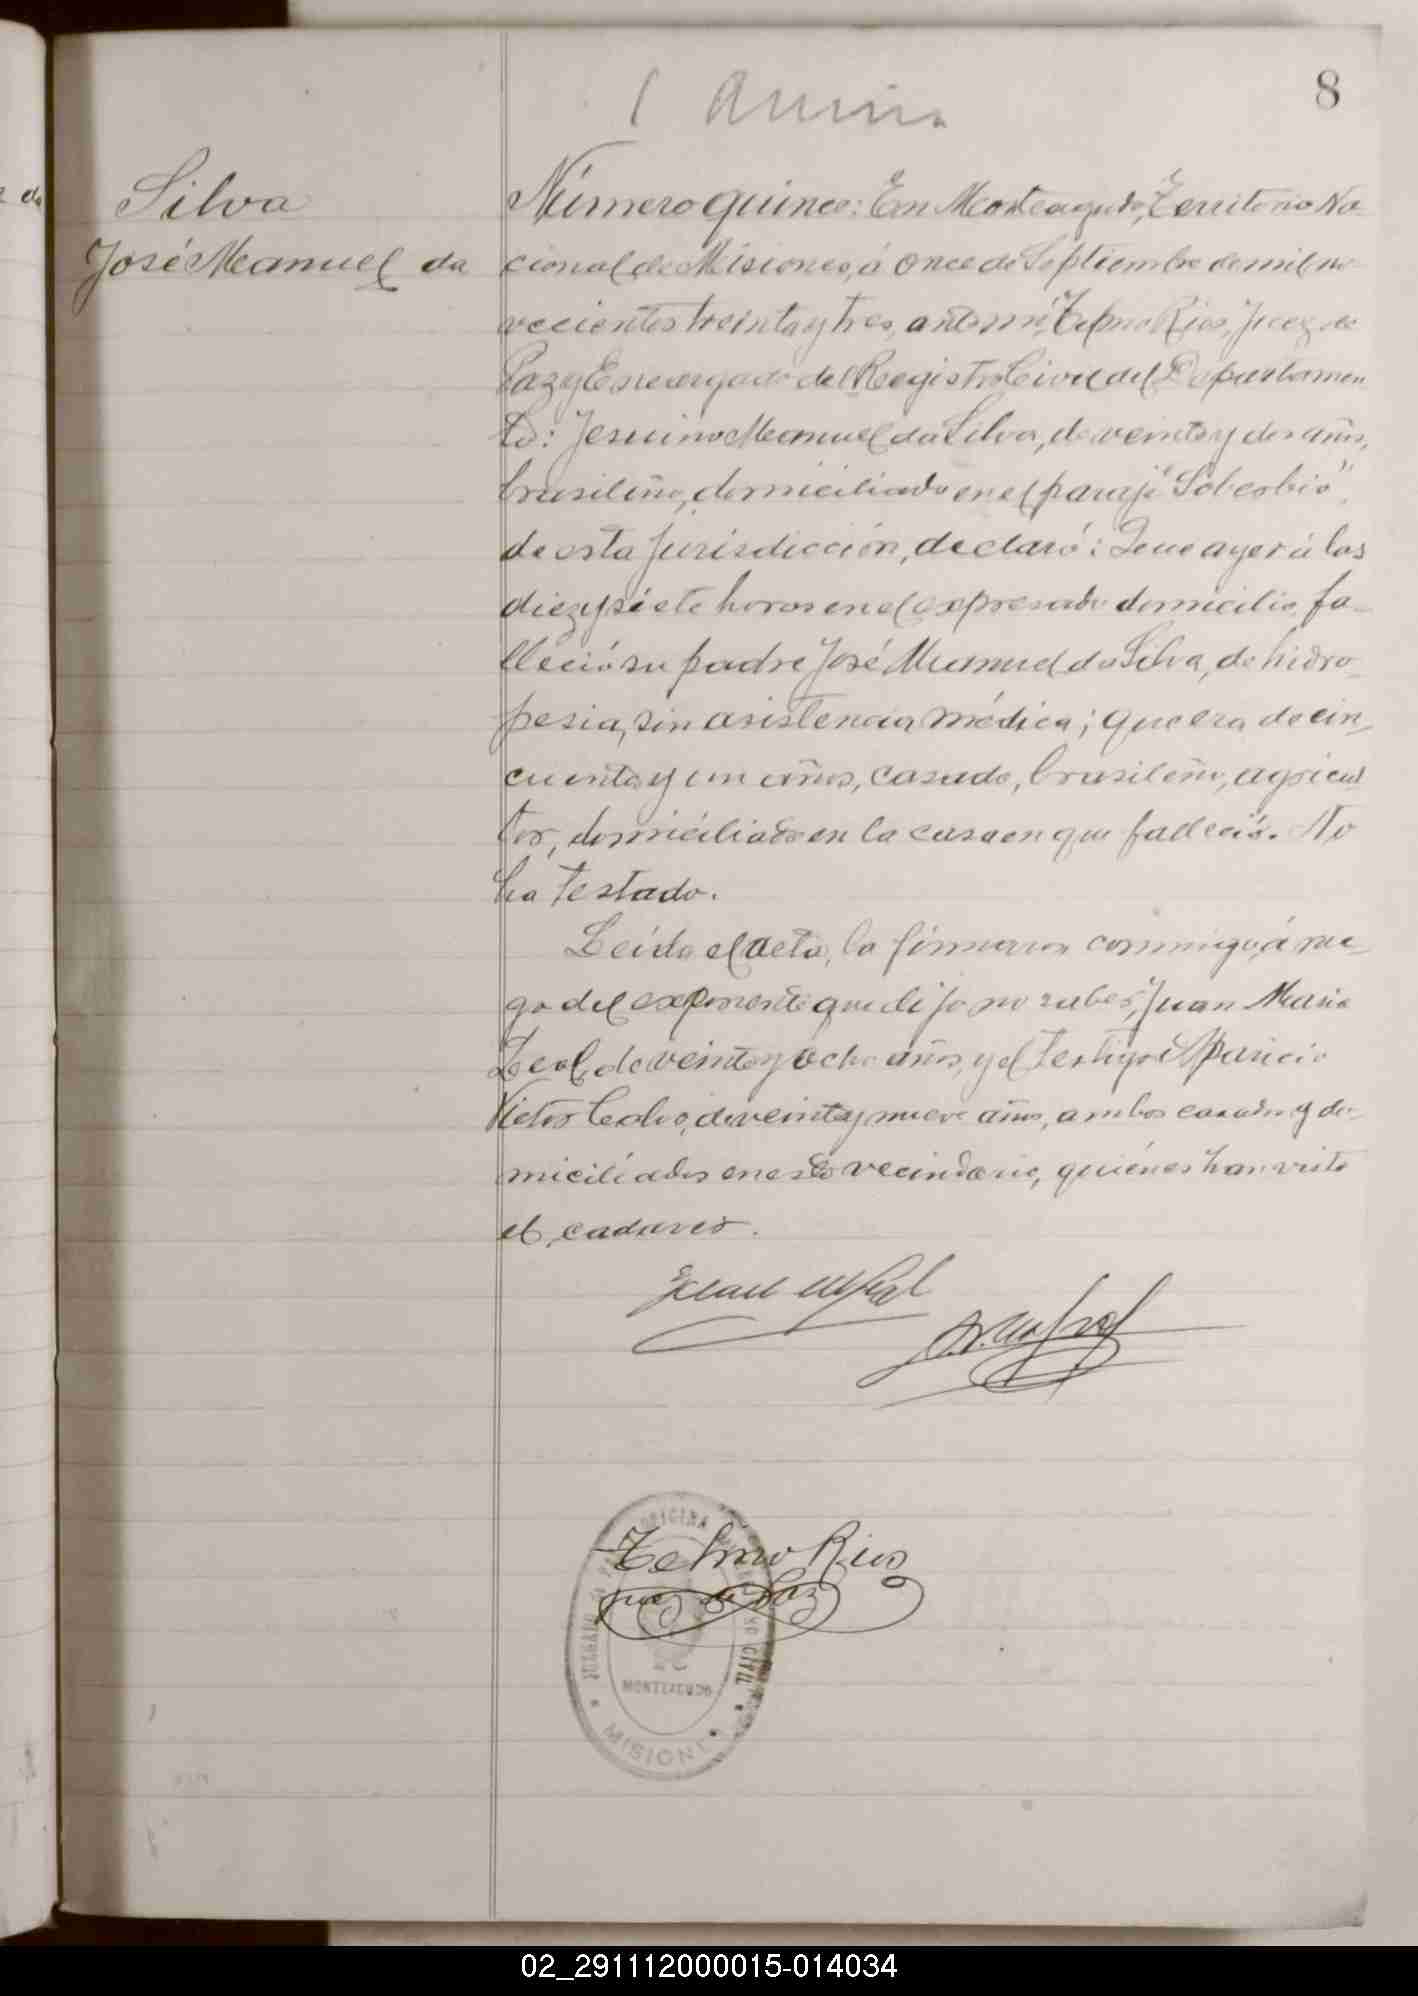 8
Silva
José Manuel da
Número quince: En Monteagudo, Territorio Na-
cional de Misiones, á once de Septiembre de mil no-
vecientos treinta y tres, ante mí, Telmo Rios, Juez de
Paz y Encargado del Registro Civil del Departamen
to: Jesuino Manuel da Silva, de veinte y dos años,
brasileño, domiciliado en el paraje "Soberbio",
de esta jurisdicción, declaró: Que ayer á las
diez y siete horas en el expresado domicilio, fa-
lleció su padre José Manuel da Silva, de hidro-
pesia, sin asistencia médica; que era de cin-
cuenta y un años, casado, brasileño, agricul
tor, domiciliado en la casa en que falleció. No
ha testado.
Leída el acta, la firmaron conmigo, á rue-
go del exponente que dijo no saber, Juan Maria
Leal, de veinte y ocho años, y el testigo Aparicio
Victor, de veinte y nueve años, ambos casados y do-
miciliados en este vecindario, quiénes han visto
el cadaver.
Juan M Leal
Telmo Rios
Juez de Paz
JUZGADO DE PAZ OFICINA REGISTRO CIVIL
MONTEAGUDO
MISIONES
02_291112000015-014034